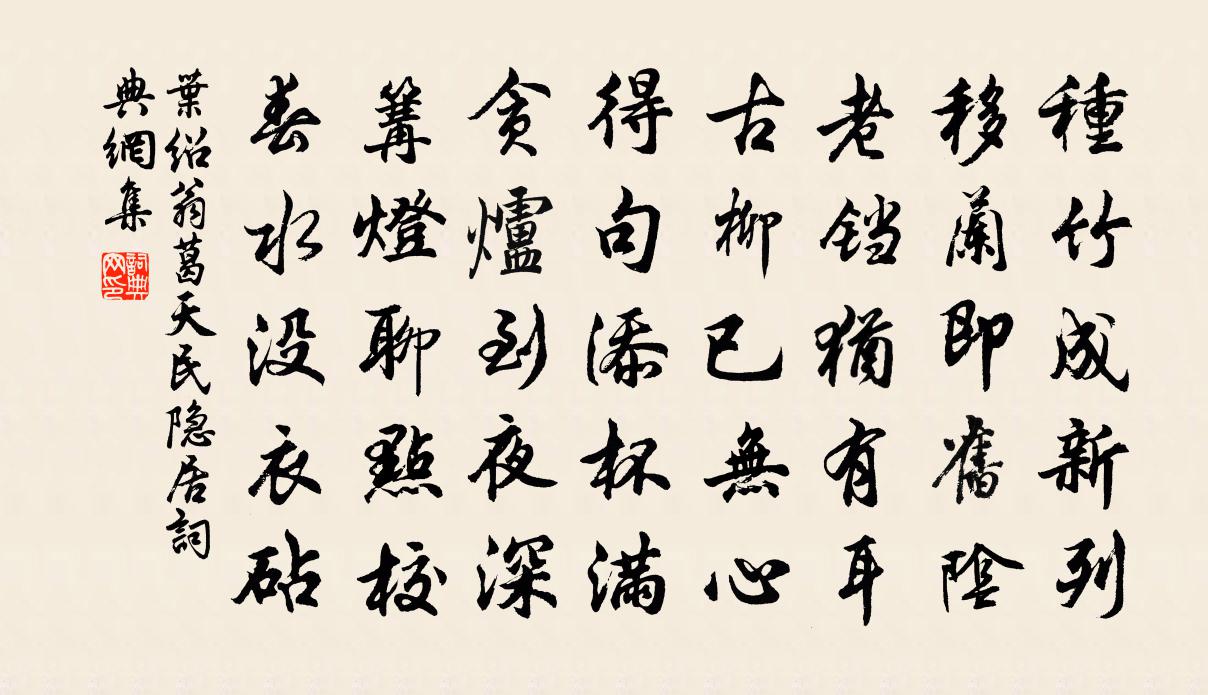 種竹成新列
移蘭即舊陰
老铛猶有耳
古柳已無心
得句添杯滿
贪爐到夜深
篝燈聊點校
春水没衣砧
葉绍翁葛天民隐居詞
典網集
詞典网印